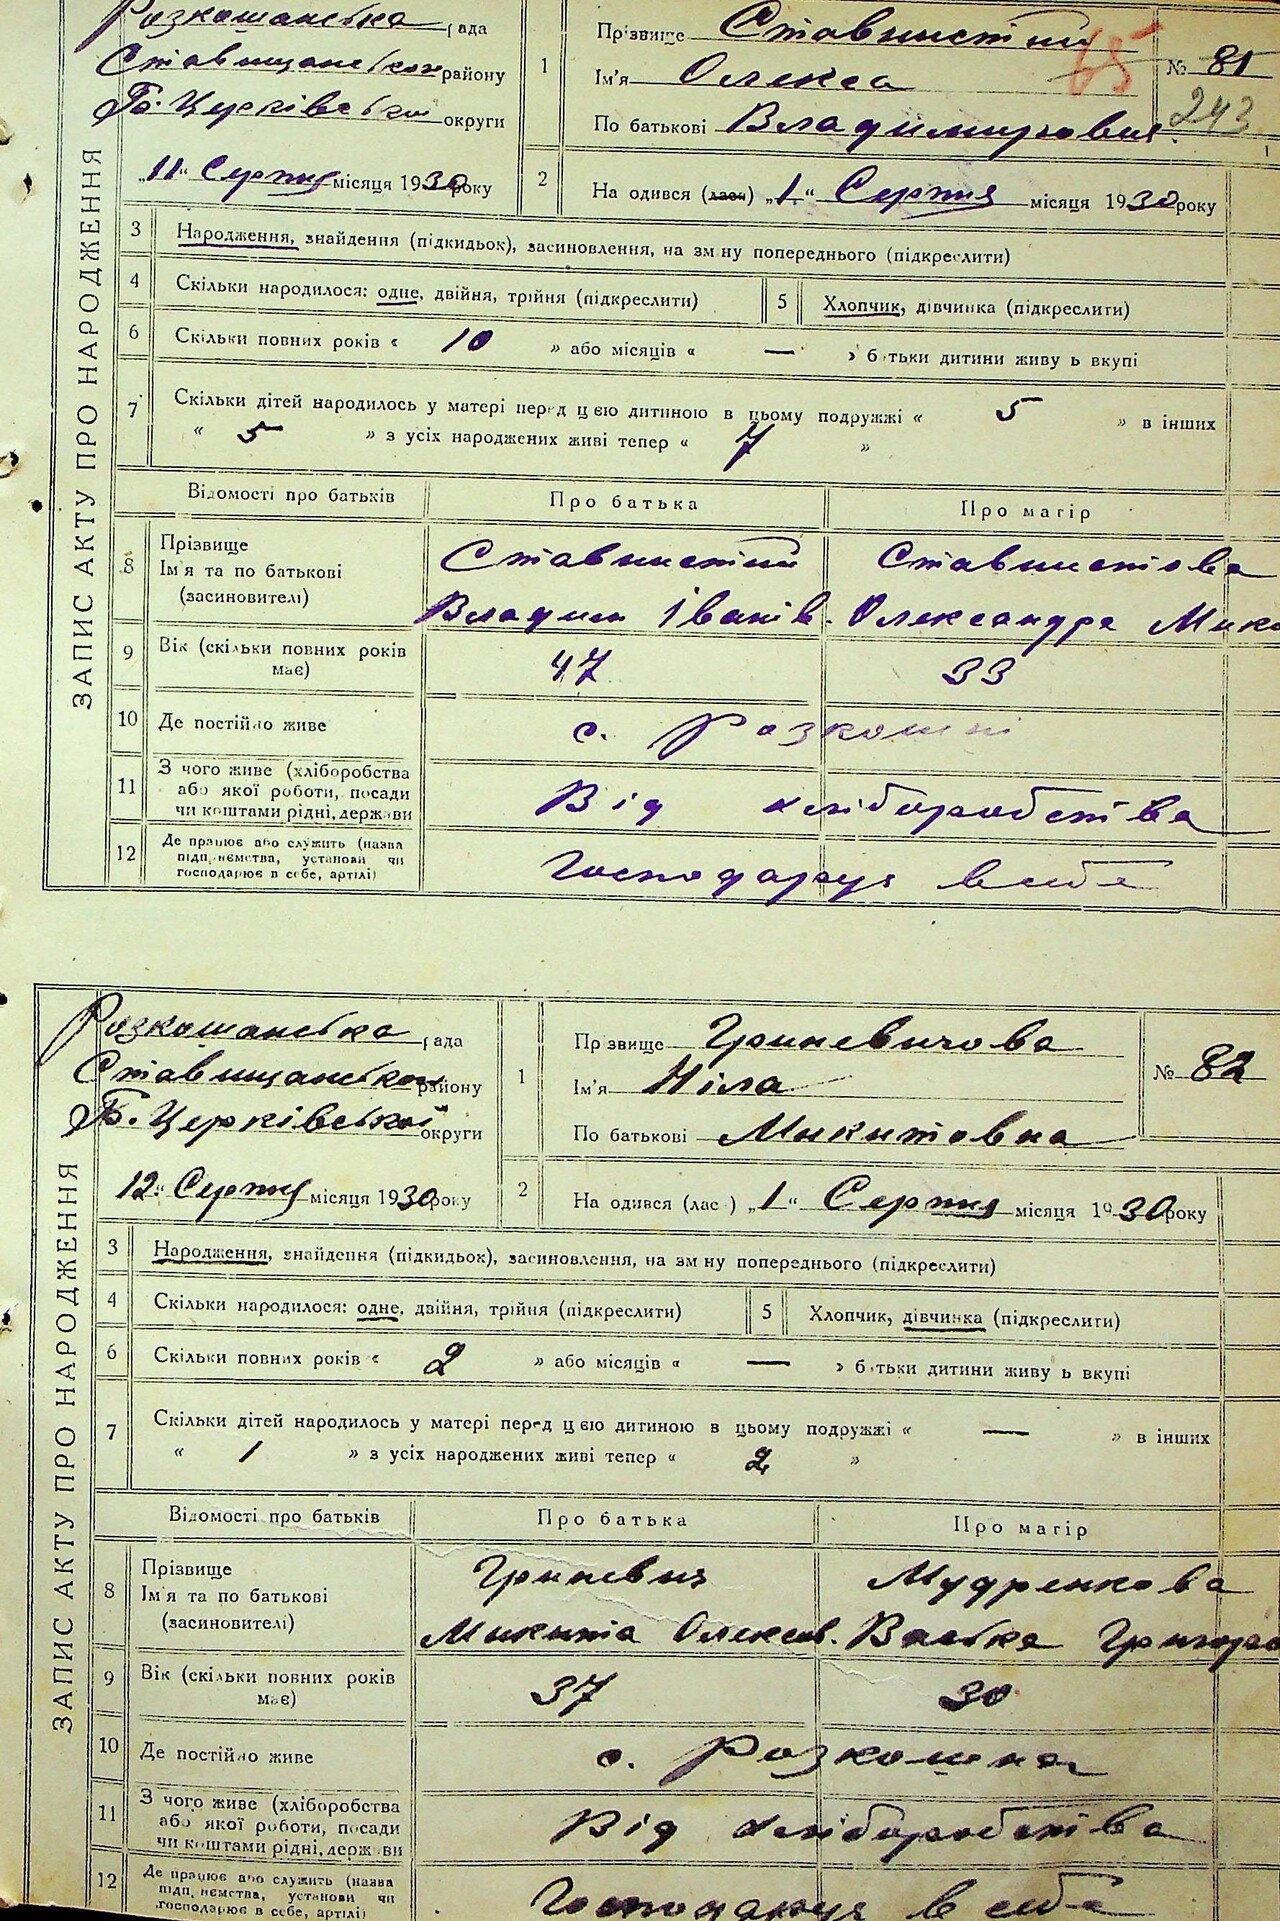 ЗАПИС АКТУ ПРО НАРОДЖЕННЯ
Розкошанська рада
Ставищанського району
Б. Церківської округи
„11“ Серпня місяця 1930 року
1 Прізвище Ставнистий
Ім'я Олекса
По батькові Владимирович
65
№ 81
243
2 На одився (лась) „1“ Серпня місяця 1930 року
3 Народження, знайдення (підкидьок), засиновлення, на зм ну попереднього (підкреслити)
4 Скільки народилося: одне, двійня, трійня (підкреслити) 5 Хлопчик, дівчинка (підкреслити)
6 Скільки повних років « 10 » або місяців « — » б тьки дитини живу ь вкупі
7 Скільки дітей народилось у матері перед цією дитиною в цьому подружжі « 5 » в інших
« 5 » з усіх народжених живі тепер « 7 »
Відомості про батьків Про батька Про матір
8 Прізвище Ставнистий Ставнистова
Ім'я та по батькові
(засиновителі) Владим Іванів. Олександра Мико
9 Вік (скільки повних років має) 47 33
10 Де постійно живе с. Розкошні
11 З чого живе (хліборобства
або якої роботи, посади Від хліборобства
чи коштами рідні, держави
12 Де працює або служить (назва
підприємства, установи чи Господарує в себе
господарює в себе, артілі)
ЗАПИС АКТУ ПРО НАРОДЖЕННЯ
Розкошанська рада
Ставищанської району
Б. Церківської округи
12“ Серпня місяця 1930 року
1 Прізвище Гриневичова
Ім'я Ніла
По батькові Микитовна
№ 82
2 На одився (лас ) „1“ Серпня місяця 1930 року
3 Народження, знайдення (підкидьок), засиновлення, на зм ну попереднього (підкреслити)
4 Скільки народилося: одне, двійня, трійня (підкреслити) 5 Хлопчик, дівчинка (підкреслити)
6 Скільки повних років « 2 » або місяців « — » б тьки дитини живу ь вкупі
7 Скільки дітей народилось у матері перед цією дитиною в цьому подружжі « — » в інших
« 1 » з усіх народжених живі тепер « 2 »
Відомості про батьків Про батька Про матір
8 Прізвище Гриневич Мудренкова
Ім'я та по батькові
(засиновителі) Микита Олексів. Васька Григоро
9 Вік (скільки повних років має) 37 30
10 Де постійно живе с. Розкошна
11 З чого живе (хліборобства
або якої роботи, посади Від хліборобства
чи коштами рідні, держави
12 Де працює або служить (назва
підприємства, установи чи Господарує в себе
господарює в себе, артілі)